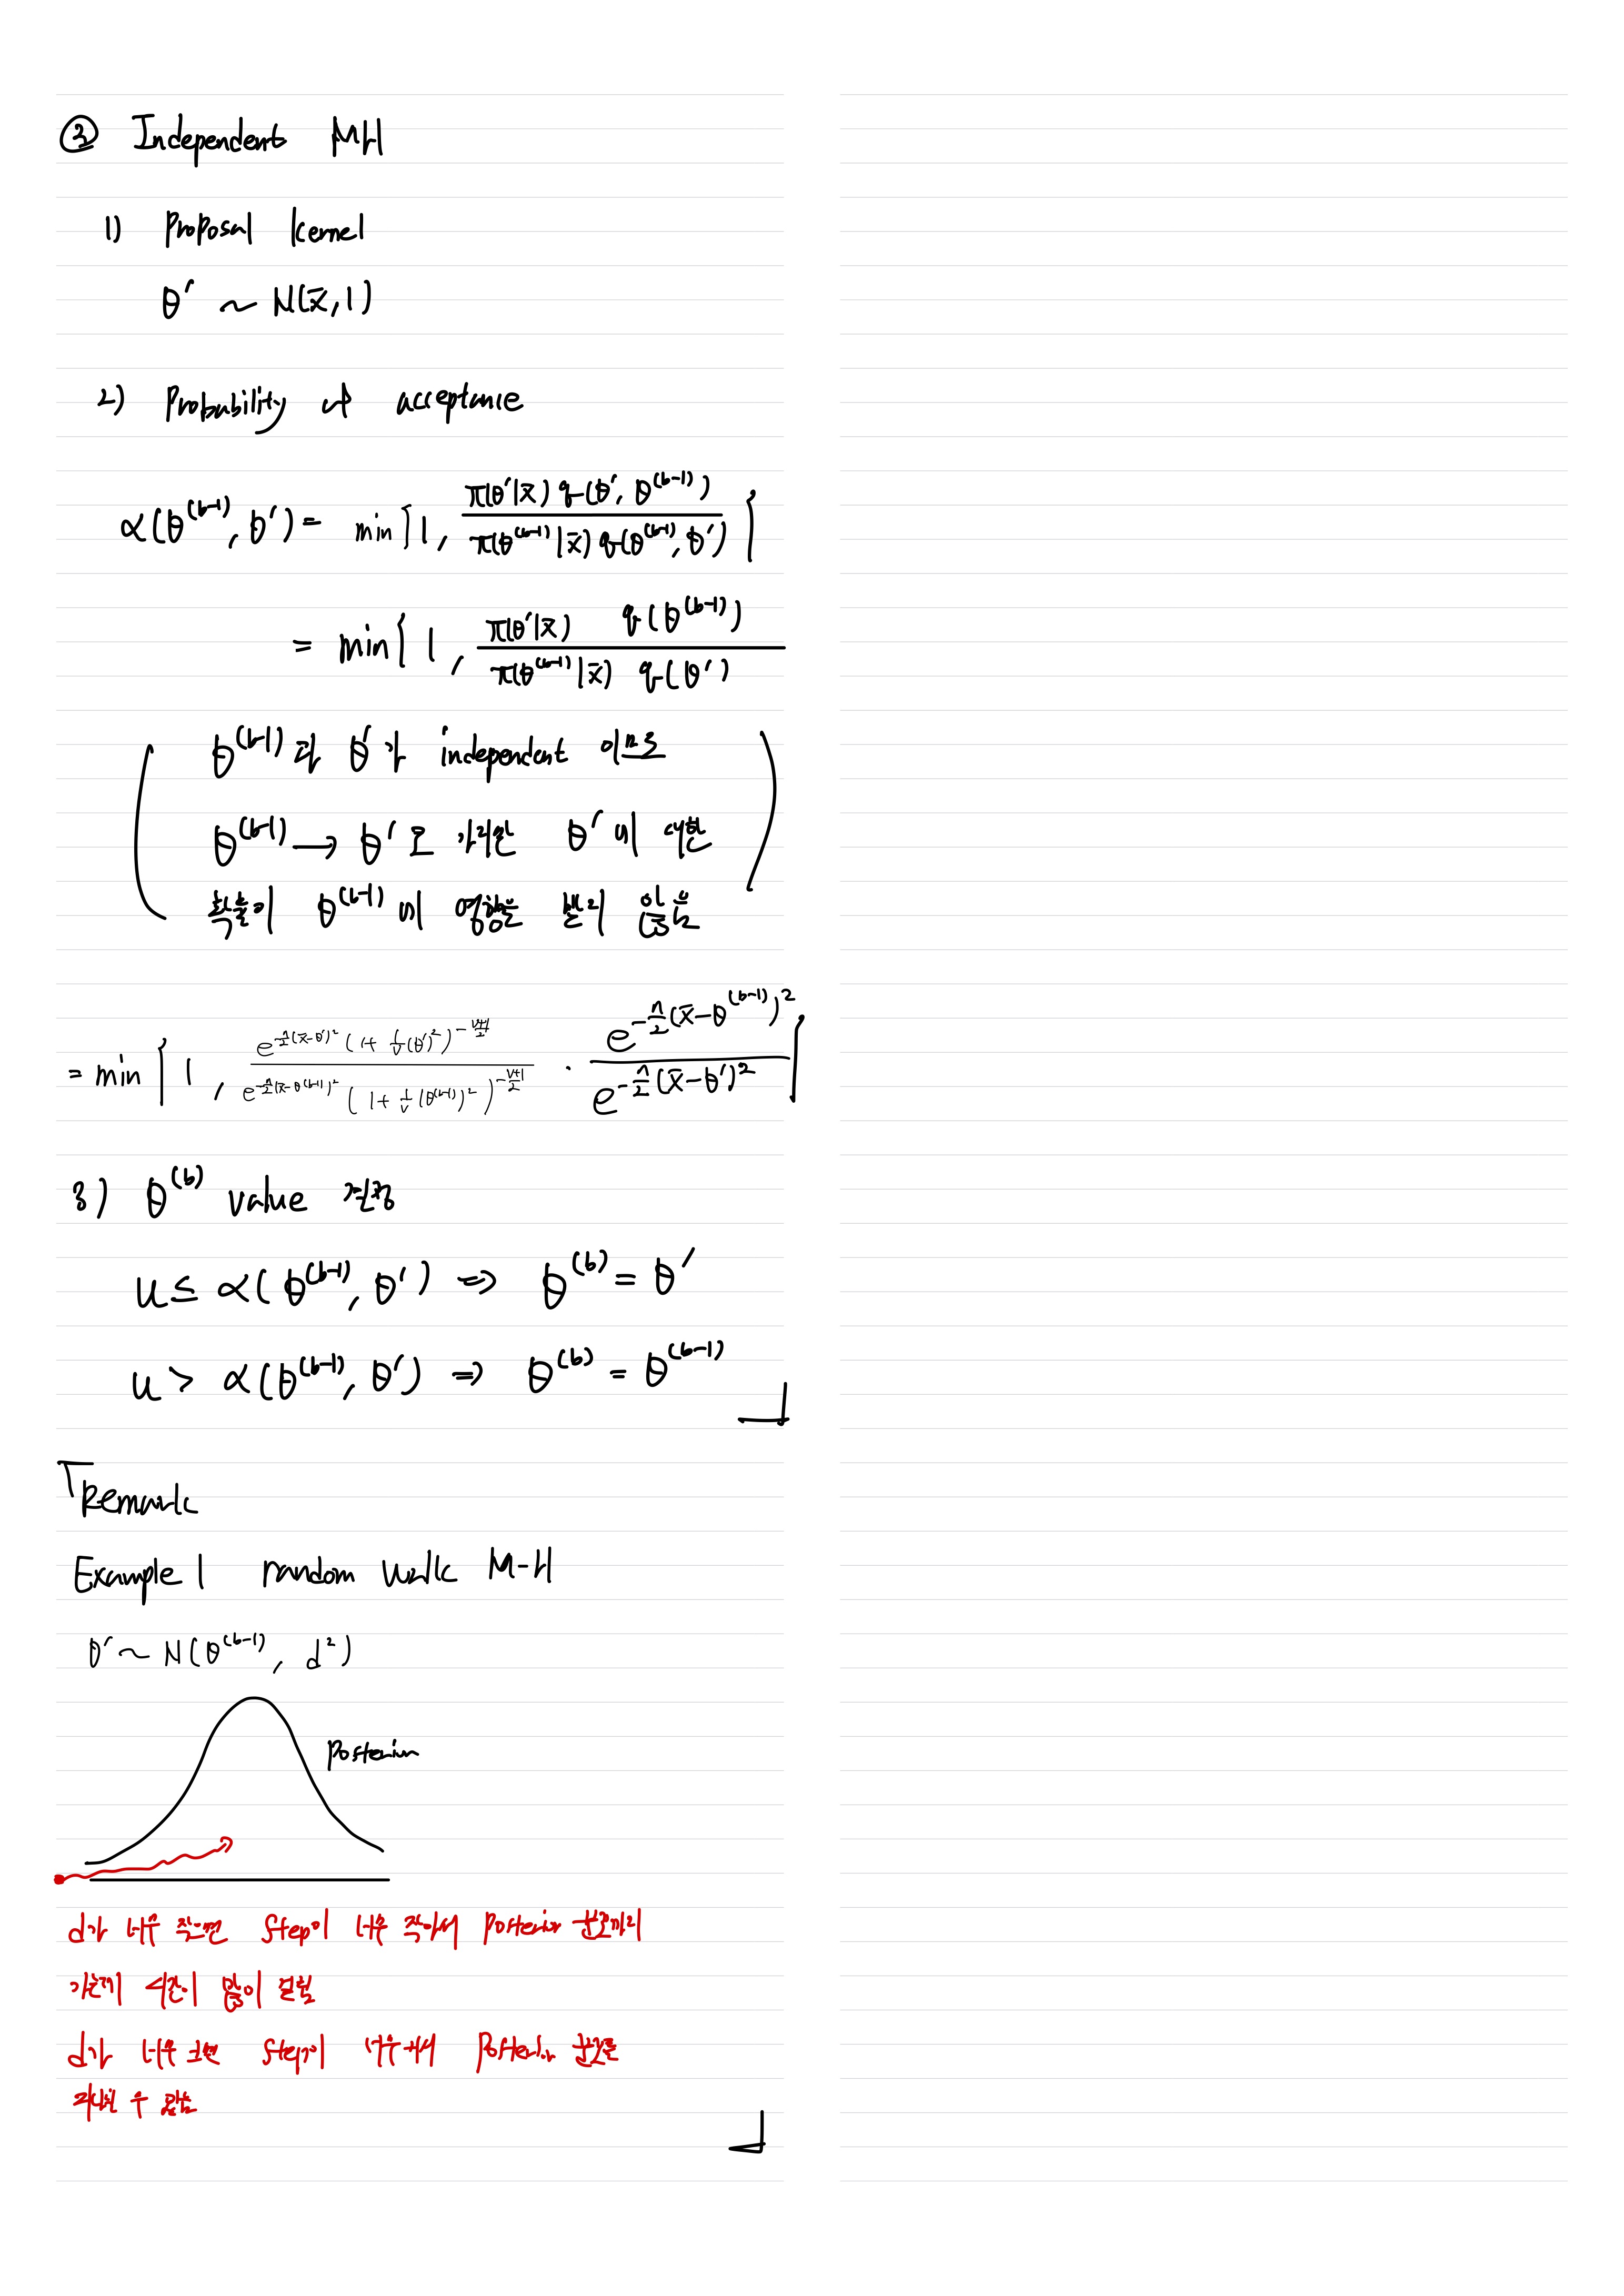 ③ Independent MH
1) Proposal kernel
θ′ ~ N(x̄, 1)
2) Probability of acceptance
α(θ^(b-1), θ′) = min{1, π(θ′|x̄) q(θ′, θ^(b-1)) / π(θ^(b-1)|x̄) q(θ^(b-1), θ′)}
= min{1, π(θ′|x̄) q(θ^(b-1)) / π(θ^(b-1)|x̄) q(θ′)
( θ^(b-1)과 θ′가 independent 이므로
θ^(b-1) → θ′로 가려는 θ′에 대한
확률이 θ^(b-1)에 영향을 받지 않음 )
= min{1, e^(-n/2(x̄-θ′)²) (1 + 1/ν(θ′)²)^(-(ν+1)/2) / e^(-n/2(x̄-θ^(b-1))²) (1 + 1/ν(θ^(b-1))²)^(-(ν+1)/2) · e^(-n/2(x̄-θ^(b-1))²) / e^(-n/2(x̄-θ′)²)}
3) θ^(b) value 결정
u ≤ α(θ^(b-1), θ′) ⇒ θ^(b) = θ′
u > α(θ^(b-1), θ′) ⇒ θ^(b) = θ^(b-1)
Remark
Example 1 random walk M-H
θ′ ~ N(θ^(b-1), d²)
Posterior
d가 너무 작으면 Step이 너무 작아서 Posterior 분포까지
가는게 시간이 많이 걸림
d가 너무 크면 Step이 너무 커서 Posterior 분포를
지나칠 수 있음